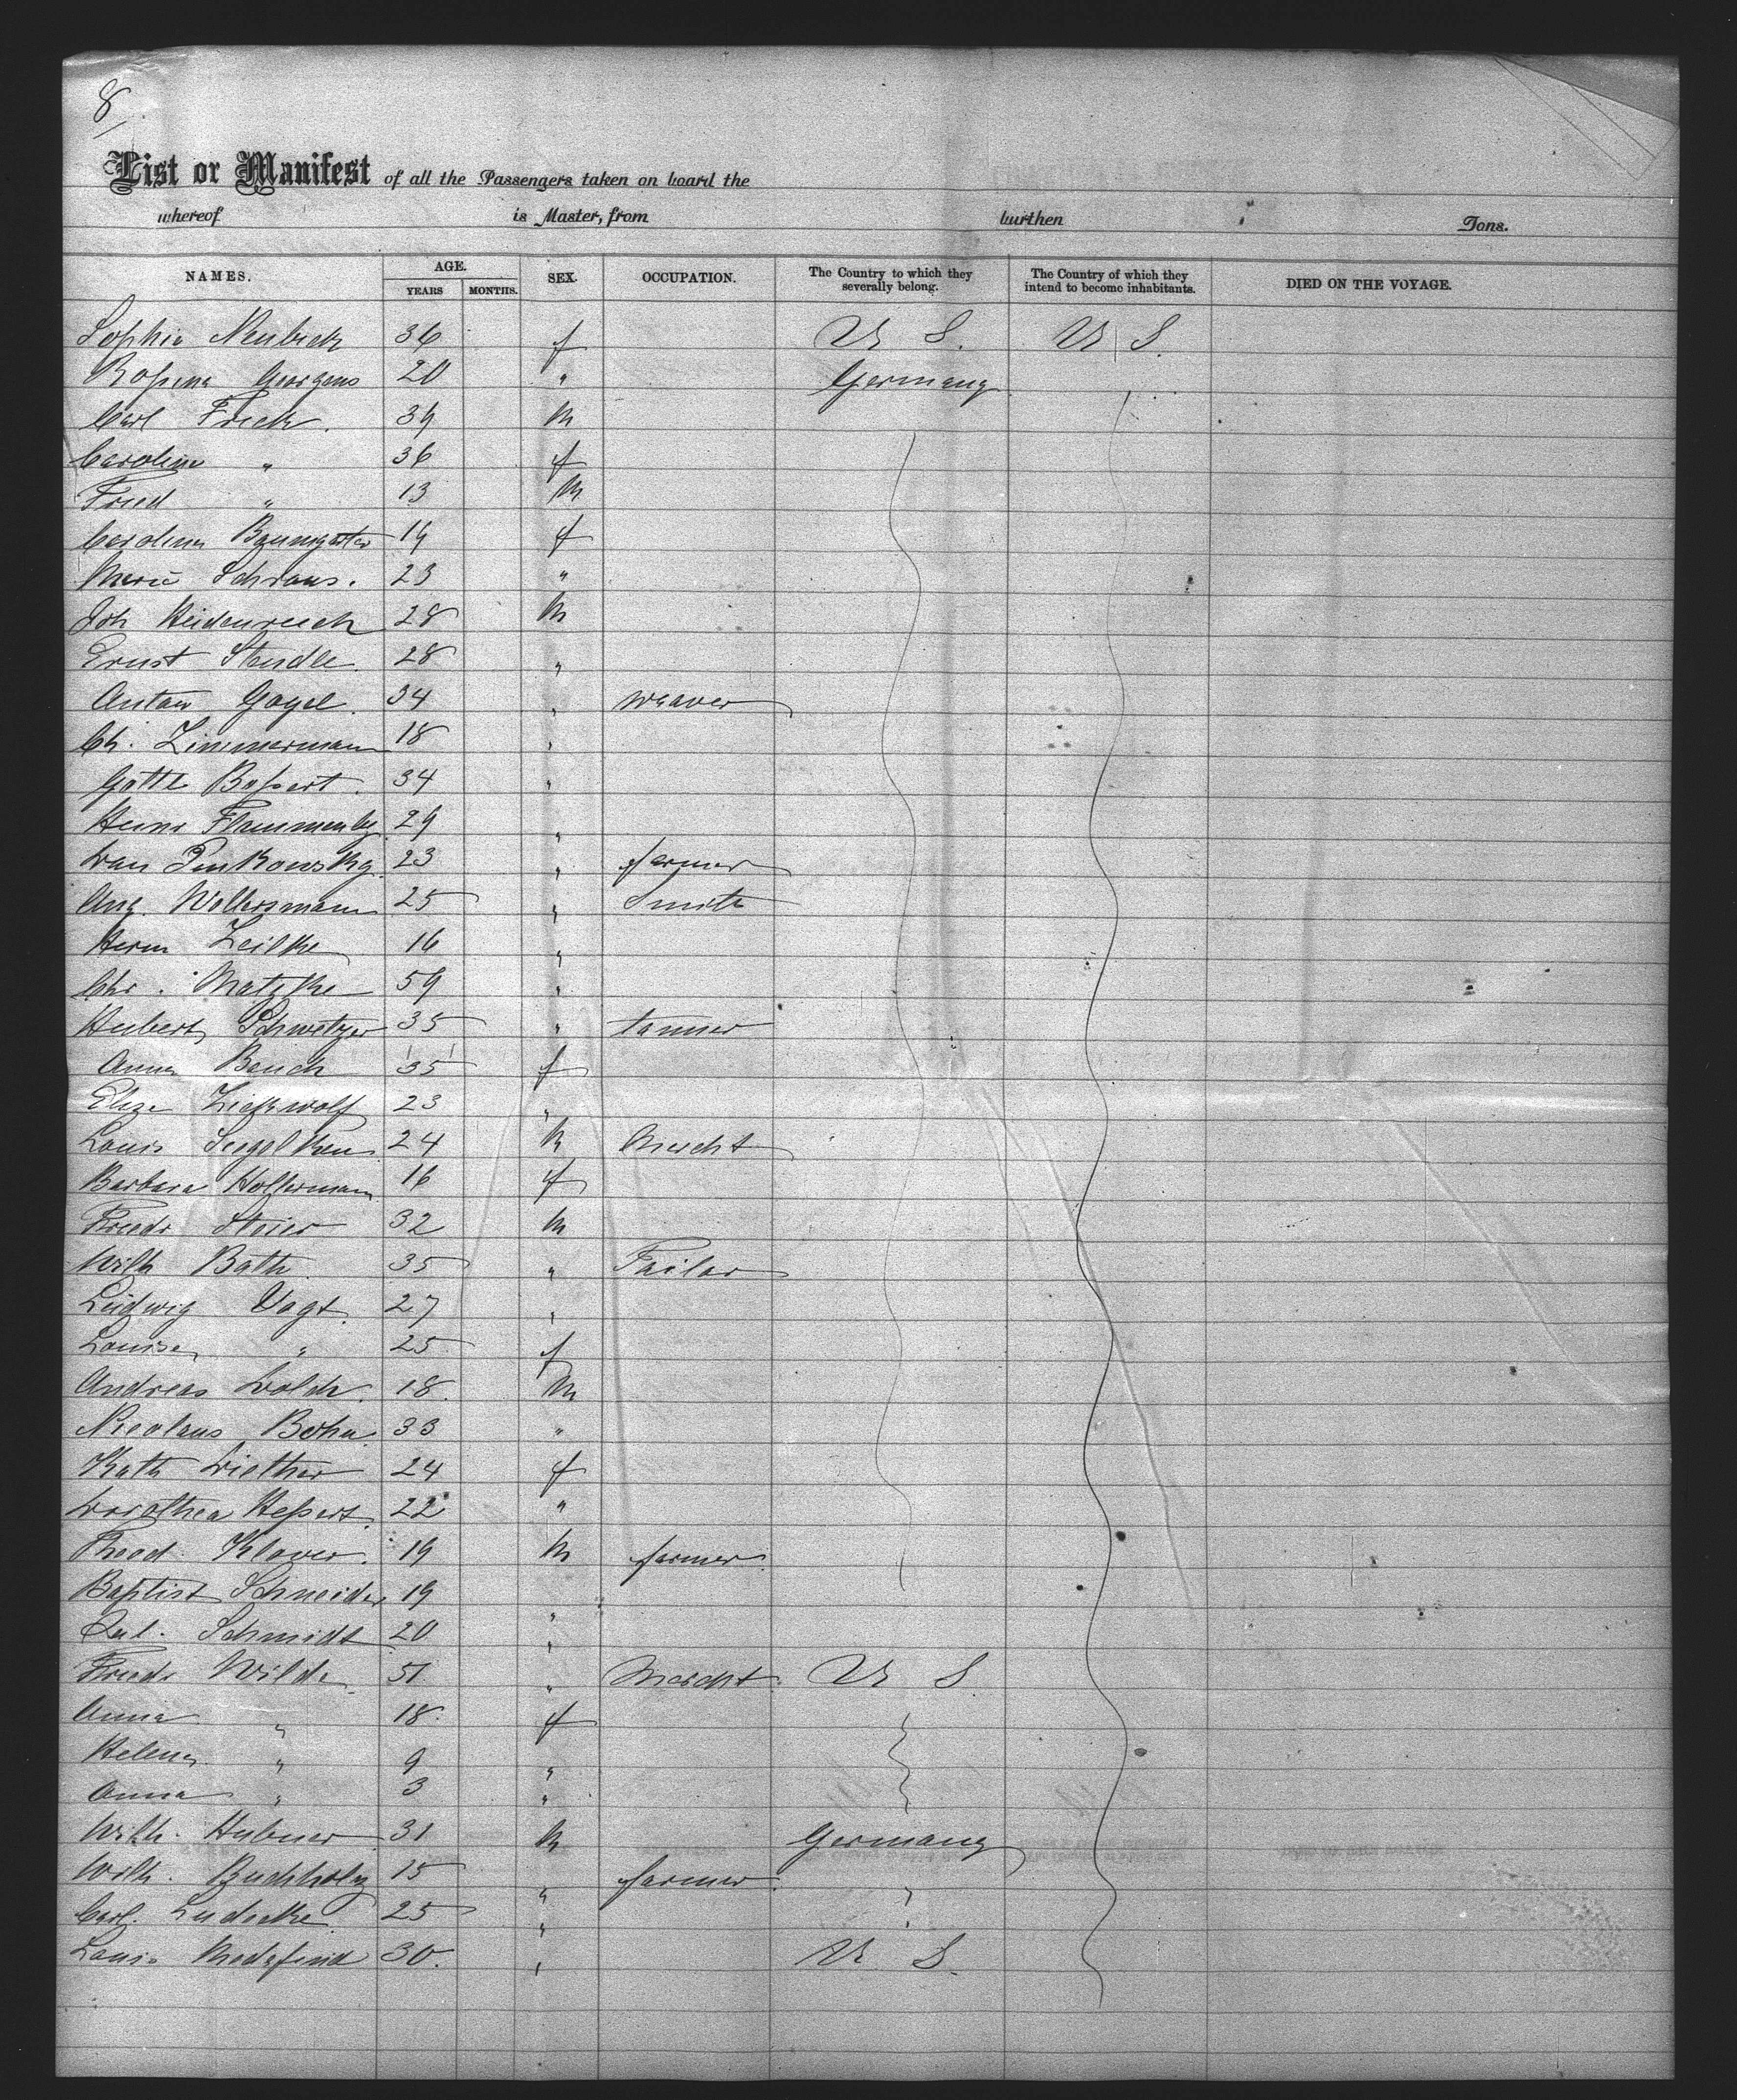 8
List or Manifest of all the Passengers taken on board the
whereof is Master, from burthen Tons.
NAMES. AGE. YEARS MONTHS. SEX. OCCUPATION. The Country to which they severally belong. The Country of which they intend to become inhabitants. DIED ON THE VOYAGE.
Sophie Neubeck 36 f U S. U S.
Rosina Georgens 20 " Germany
Carl Frick. 39 M
Caroline " 36 f
Fried " 13 M
Carolina Baumgarter 19 f
Marie Schraus. 23 "
Joh Heidenreich 28 M
Ernst Stendle 28 "
Anton Gogel. 34 " weaver
Ch. Zimmermann 18 "
Gottl Bossert. 34 "
29 "
Pinkowsky 23 " farmer
Aug. Wellersmann 25 " Smith
Herm Zeilke 16 "
Chr. Matzke 59 "
Hubert Schwetzer 35 " tanner
Anna Bauch 35 f
Elize Zickwolf 23 "
Louis Segelken 24 M Mercht
Barbara Hollermann 16 f
Friedr Stoier 32 M
Wilh Bath 35 " Tailor
Ludwig Vogt. 27 "
Louise " 25 f
Andreas 18. M
Nicolaus Bohn 33 "
Kath 24 f
Dorothea Hessert. 22 "
Theod. Klaver. 19 M farmer.
Baptist Schneider 19 "
Schmidt 20 "
Friedr Wilde 51 " Mercht. U S
Anna " 18. f
Helena " 9 "
Anna " 3 "
Wilh. Hubner 31 M Germany
Wilh. Buchholz 15 " farmer. "
Carl. Ludecke 25 " "
Louis Medefind 30. " U S.